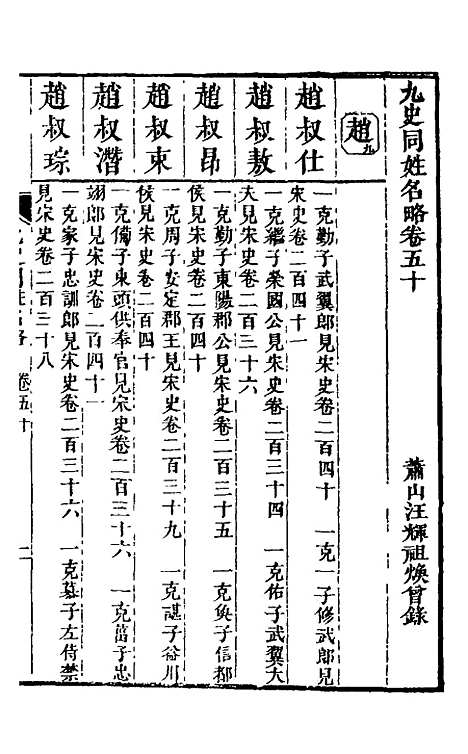 九史同姓名略卷五十
蕭山汪輝祖煥曾錄
趙九
趙叔仕
一克勤子武翼郎見宋史卷二百四十　一克一子修武郎見
宋史卷二百四十一
趙叔敖
一克繼子榮國公見宋史卷二百三十四　一克佑子武翼大
夫見宋史卷二百三十六
趙叔昂
一克勤子東陽郡公見宋史卷二百三十五　一克奐子信都
侯見宋史卷二百四十
趙叔束
一克周子安定郡王見宋史卷二百三十九　一克諶子洛川
侯見宋史卷二百四十
趙叔潛
一克備子東頭供奉官見宋史卷二百三十六　一克當子忠
翊郎見宋史卷二百四十一
趙叔琮
一克家子忠訓郎見宋史卷二百三十六　一克慕子左侍禁
見宋史卷二百三十八
九史同姓名略　卷五十　一